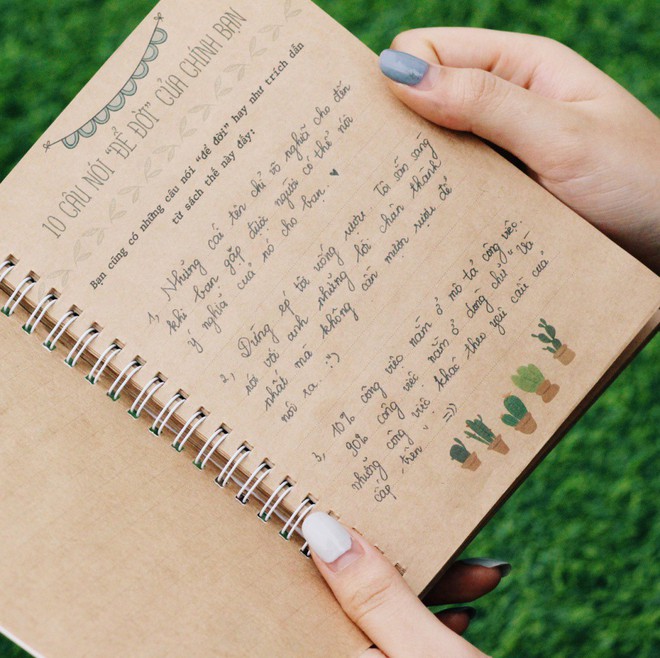 10 CÂU NÓI "ĐỂ ĐỜI" CỦA CHÍNH BẠN
Bạn cũng có những câu nói "để đời" hay như trích dẫn
từ sách thế này đấy:
1, Những cái tên chỉ rõ nghĩa cho đến
khi bạn gặp được người có thể nói
ý nghĩa của nó cho bạn. ♥
2, Đừng ép tôi uống rượu. Tôi sẵn sàng
nói với anh những lời chân thành
nhất mà không cần mượn rượu để
nói ra. :")
3, 10% công việc nằm ở mô tả công việc.
90% công việc nằm ở dòng chữ " Và
những công việc khác theo yêu cầu của
cấp trên " =))